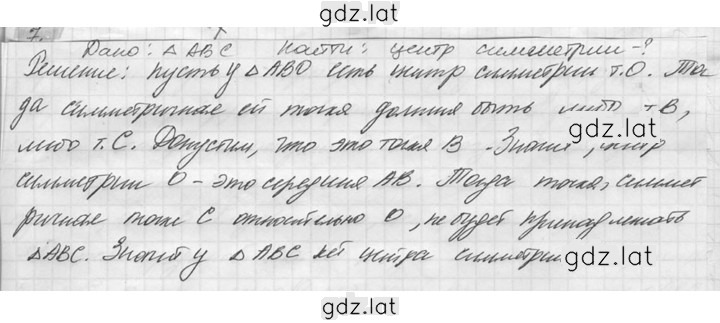 gdz.lat
7.
Дано: △ABC Найти: центр симметрии-?
Решение: пусть у △ABO есть центр симметрии т.О. Тог
да симметричная ей точка должна быть либо т.В,
gdz.lat
либо т.С. Допустим, что это точка В. Значит, центр
симметрии О - это середина АВ. Тогда точка, симмет
ричная точке С относительно О, не будет принадлежать
△ABC. Значит у △ABC нет центра симметрии
gdz.lat
gdz.lat